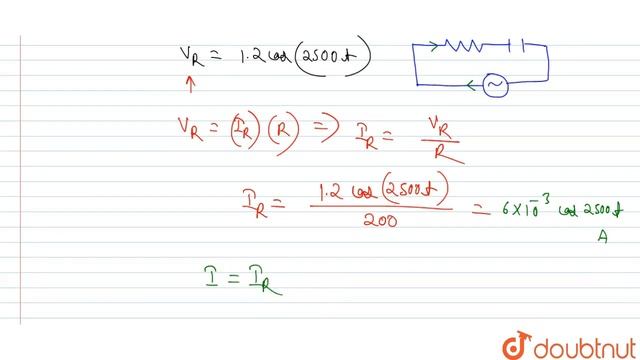 V_R = 1.2 cos(2500t)
V_R = (I_R)(R) => I_R = V_R / R
I_R = 1.2 cos(2500t) / 200 = 6×10^-3 cos 2500t
A
I = I_R
doubtnut